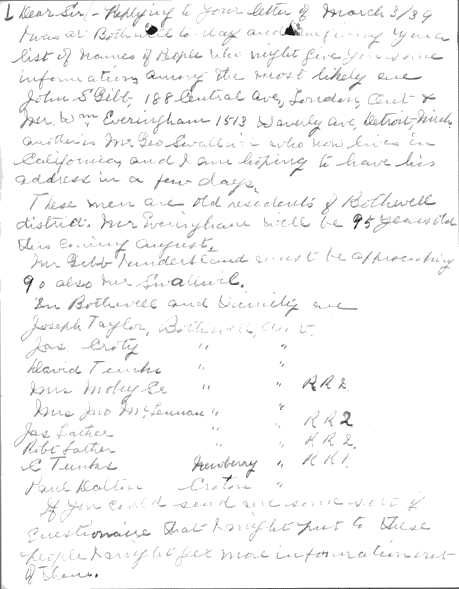 Dear Sir/- Replying to your letter of March 3/39
I was at Bothwell to-day and am giving you a
list of names of People who might give you some
information, among the most likely are
John S Gibb, 188 Central Ave, London, Ont &
Mr. Wm Everingham 1513 Waverly ave, Detroit, Mich.
another is Mr Geo who now lives in
California, and I am hoping to have his
address in a few days.
These men are old residents of Bothwell
district. Mr Everingham will be 95 years old
this coming August.
Mr Gibb I understand must be approaching
90 also Mr
In Bothwell and Vicinity are
Joseph Taylor, Bothwell, Ont.
Jas Croty " "
David Tunks " "
Mrs Sr " " RR2
Mrs Jno McLennan " " RR2
Jas Lather " RR2.
Robt Lather
C Tunks Newberry " RR1.
Paul Dalton Croton "
If you could send me some sort of
Questionaire that I might put to these
people I might get more information out
of them.